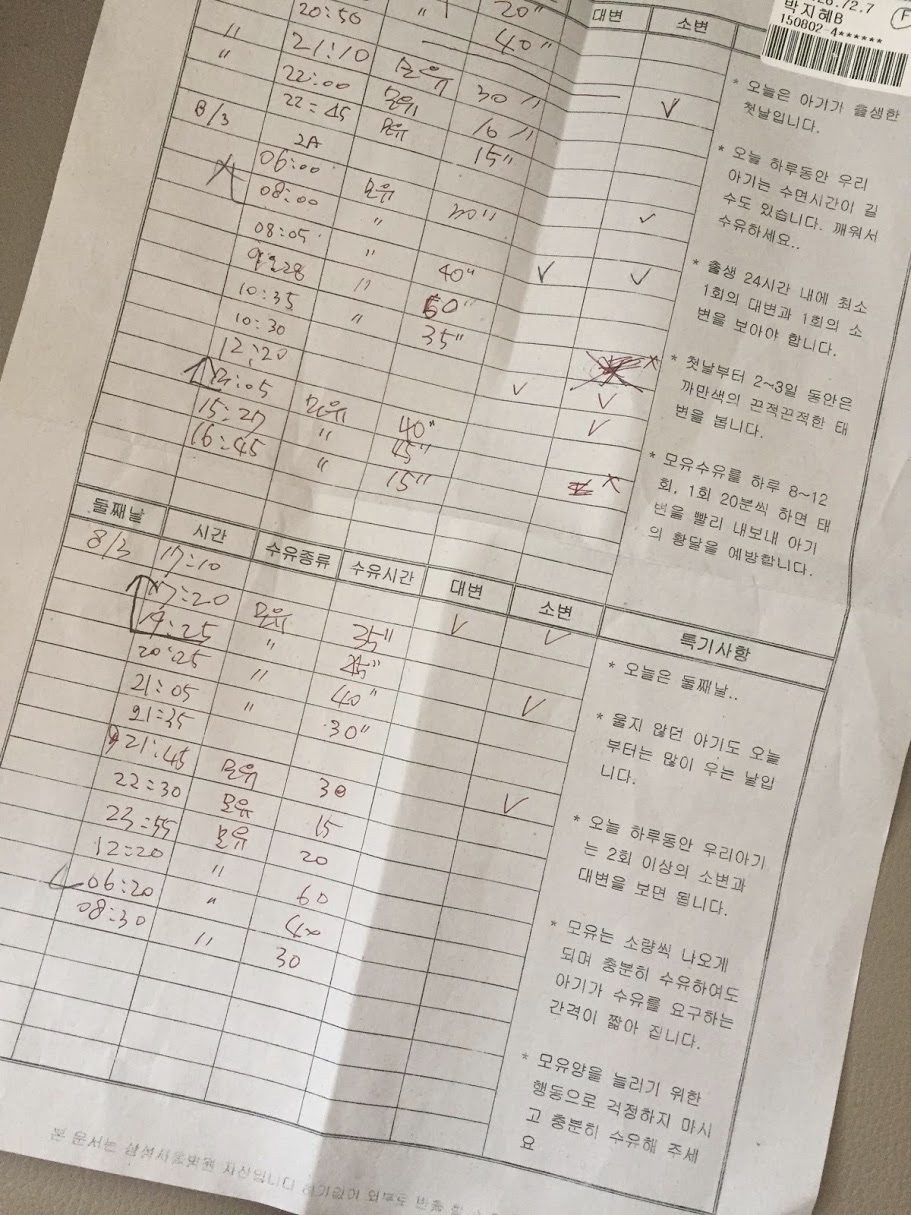 박지혜B
150802-4******
F
대변 소변
20:50 〃 20〃
〃 21:10 40〃
〃 22:00 모유 30〃
22:45 모유 10〃
8/3 모유 15〃
06:00
08:00 모유 20〃
08:05 〃
〃 40〃
10:35 〃 50〃
10:30 〃 35〃
12:20
15:27 모유 40〃
16:45 〃 45〃
〃 15〃
* 오늘은 아기가 출생한
첫날입니다.
* 오늘 하루동안 우리
아기는 수면시간이 길
수도 있습니다. 깨워서
수유하세요..
* 출생 24시간 내에 최소
1회의 대변과 1회의 소
변을 보아야 합니다.
* 첫날부터 2~3일 동안은
까만색의 끈적끈적한 태
변을 봅니다.
* 모유수유를 하루 8~12
회, 1회 20분씩 하면 태
변을 빨리 내보내 아기
의 황달을 예방합니다.
둘째날 시간 수유종류 수유시간 대변 소변 특기사항
8/3 17:10
17:20 모유 35〃
19:25 〃
20:25 〃 40〃
21:05 〃 30〃
21:35
21:45 모유 30
22:30 모유 15
23:55 모유 20
12:20 〃 60
06:20 〃
08:30 〃 30
* 오늘은 둘째날..
* 울지 않던 아기도 오늘
부터는 많이 우는 날입
니다.
* 오늘 하루동안 우리아기
는 2회 이상의 소변과
대변을 보면 됩니다.
* 모유는 소량씩 나오게
되며 충분히 수유하여도
아기가 수유를 요구하는
간격이 짧아 집니다.
* 모유양을 늘리기 위한
행동으로 걱정하지 마시
고 충분히 수유해 주세
요
본 문서는 삼성서울병원 자산입니다 허가없이 외부로 반출